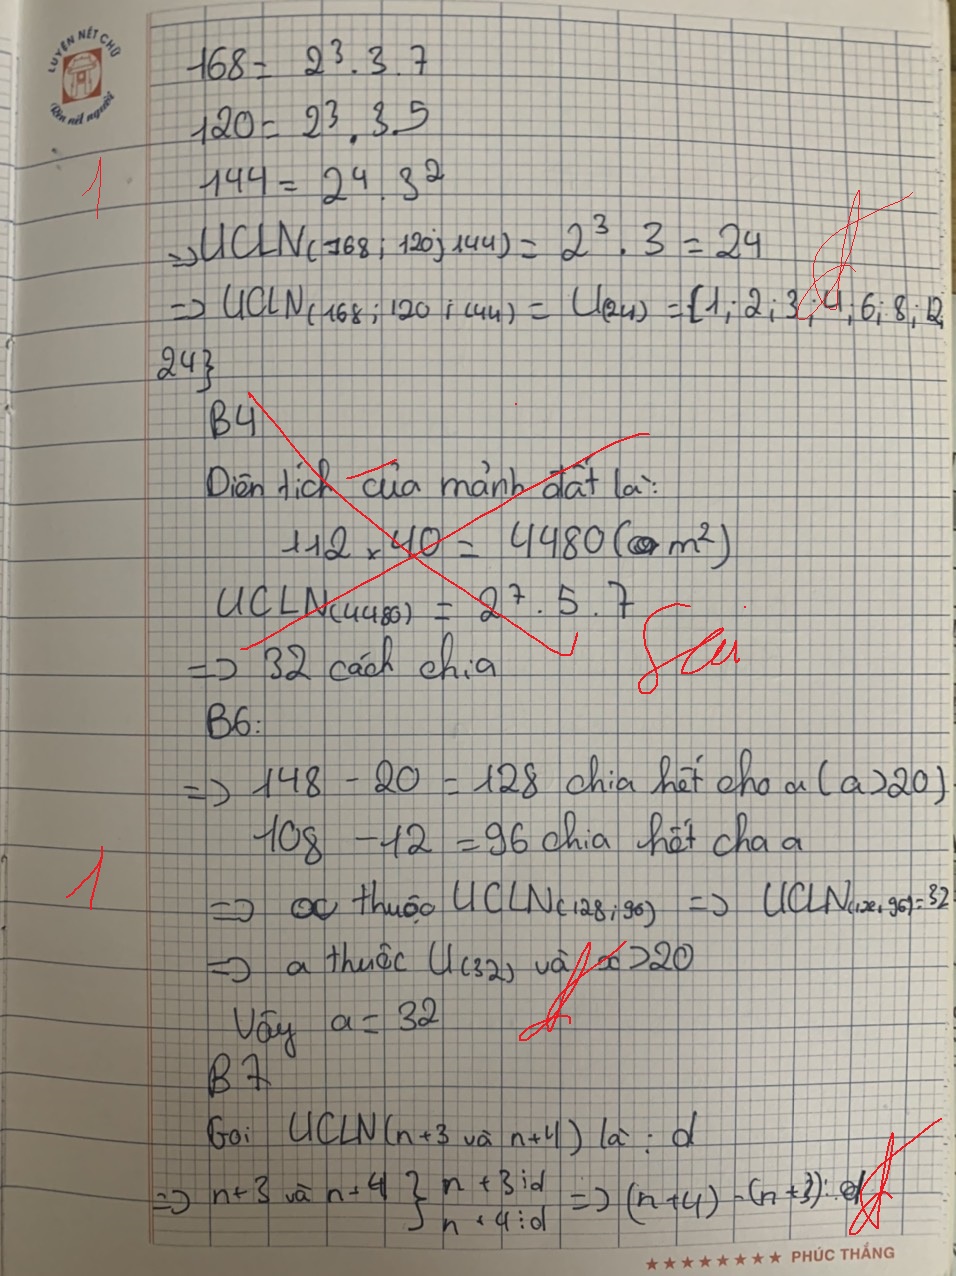 LUYỆN NẾT CHỮ
Rèn nết người
168 = 2³.3.7
120 = 2³.3.5
1
144 = 2⁴.3²
=> ƯCLN(168; 120; 144) = 2³.3 = 24
=> ƯCLN(168; 120; 144) = Ư(24) = {1; 2; 3; 4; 6; 8; 12;
24}
B4
Diên tích của mảnh đất là:
112 x 40 = 4480 (m²)
UCLN(4480) = 2⁷.5.7
Sai
=> 32 cách chia
B6:
=> 148 - 20 = 128 chia hết cho a (a>20)
108 - 12 = 96 chia hết cha a
1
=> thuộc UCLN(128; 96) => UCLN(128, 96) = 32
=> a thuộc U(32) và x >20
Vây a = 32
B7
Goi UCLN(n+3 và n+4) là: d
=> n+3 và n+4 } n+3⋮d => (n+4) - (n+3)⋮d
n+4⋮d
★★★★★★★★ PHÚC THẮNG